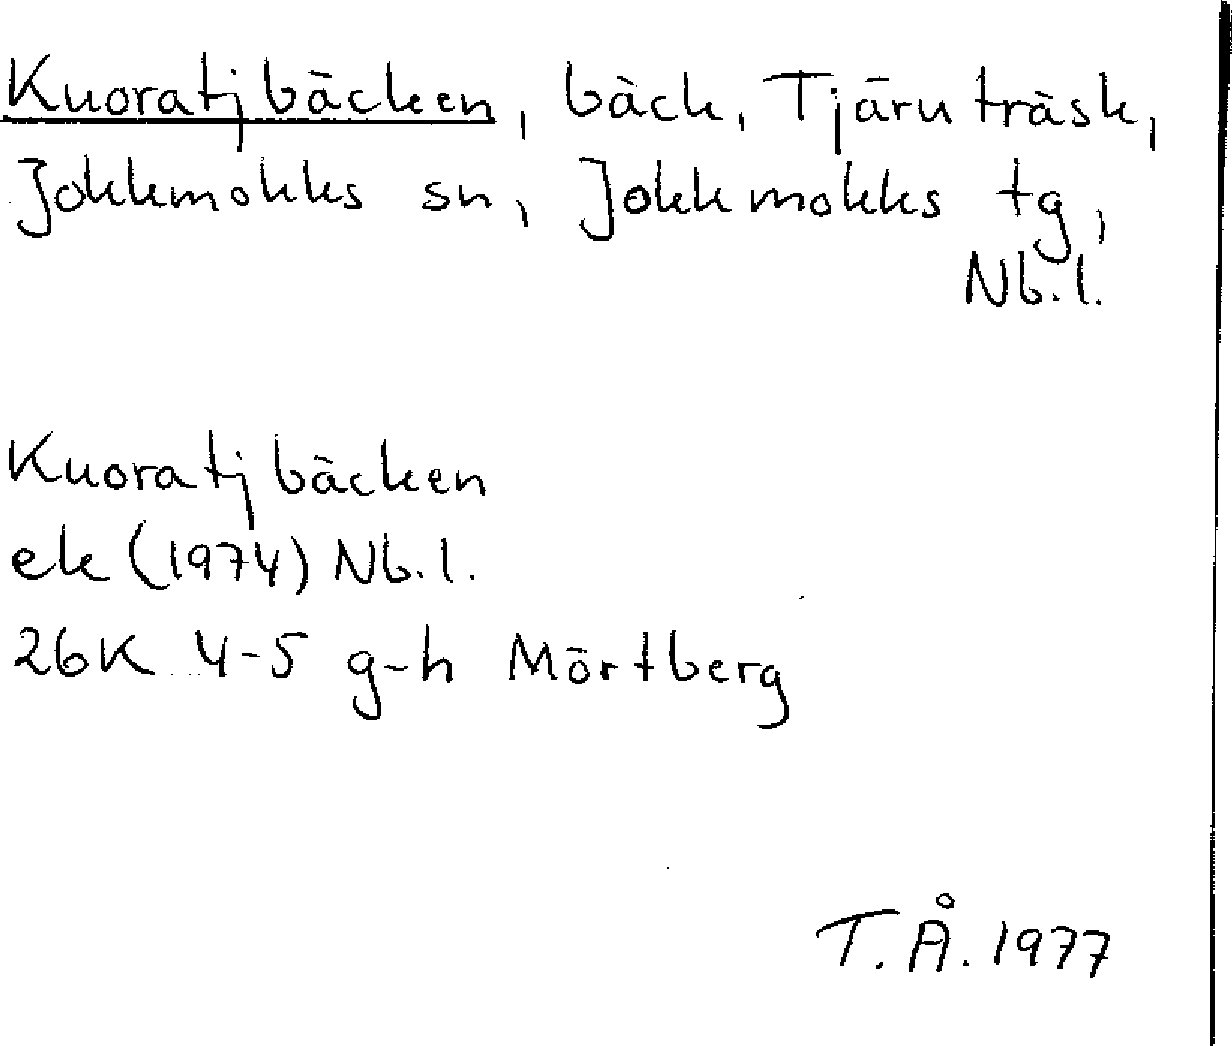 Kuoratjbäcken, bäck, Tjäruträsk,
Jokkmokks sn, Jokkmokks tg,
Nb.l.
Kuoratjbäcken
ek (1974) Nb.l.
26K 4-5 g-h Mörtberg
T.Å. 1977